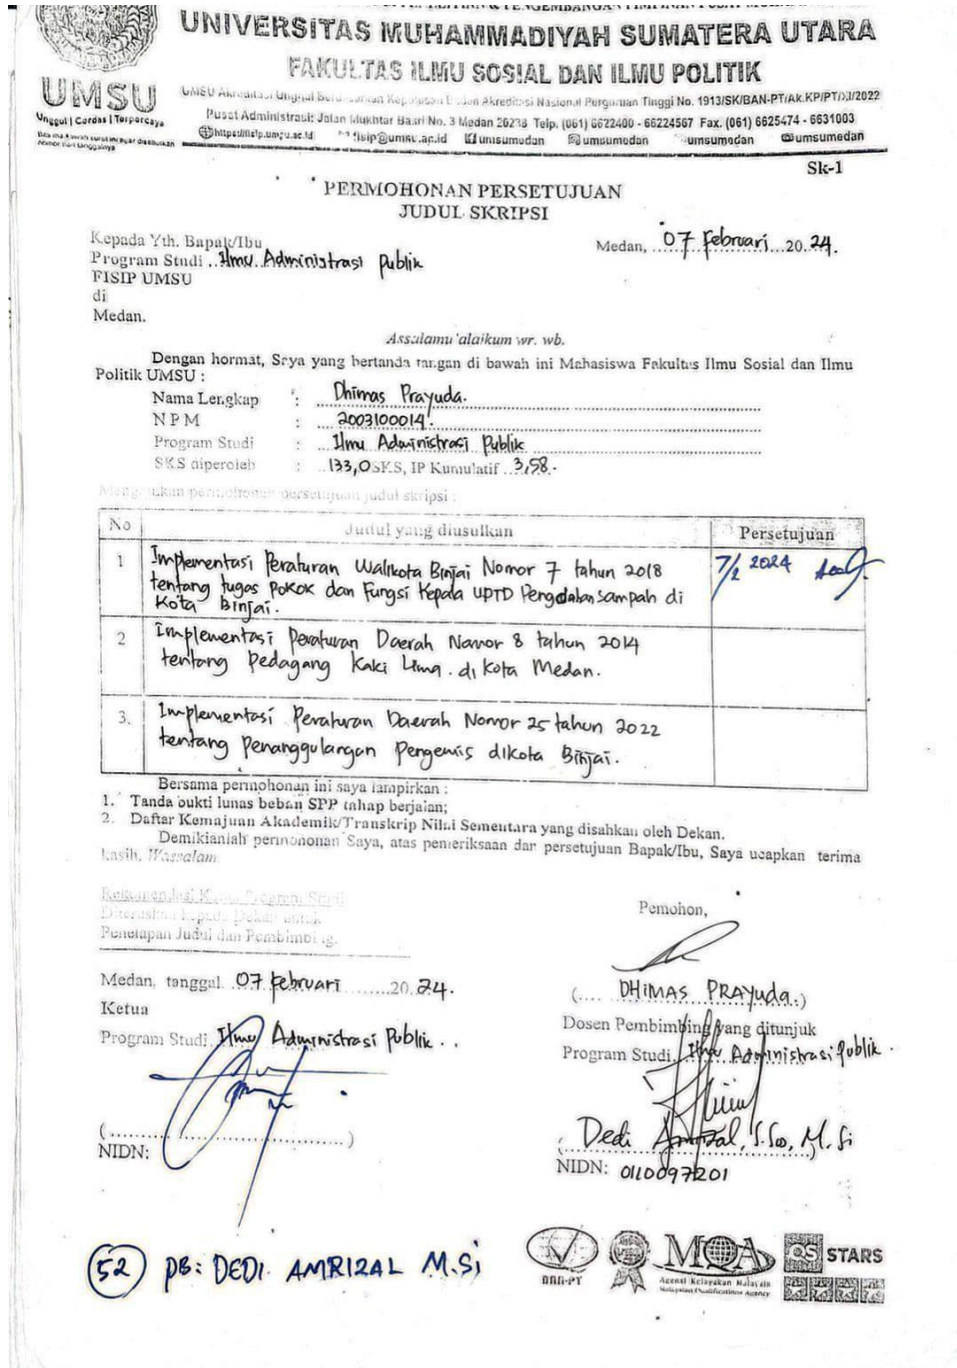 UNIVERSITAS MUHAMMADIYAH SUMATERA UTARA
FAKULTAS ILMU SOSIAL DAN ILMU POLITIK
UMSU
Unggul | Cerdas | Terpercaya
UMSU Akreditasi Unggul Berdasarkan Keputusan Badan Akreditasi Nasional Perguruan Tinggi No. 1913/SK/BAN-PT/Ak.KP/PT/XI/2022
Pusat Administrasi: Jalan Mukhtar Basri No. 3 Medan 20238 Telp. (061) 6622400 - 66224567 Fax. (061) 6625474 - 6631003
https://fisip.umsu.ac.id fisip@umsu.ac.id umsumedan umsumedan umsumedan umsumedan
Sk-1
PERMOHONAN PERSETUJUAN
JUDUL SKRIPSI
Kepada Yth. Bapak/Ibu
Medan, 07 Februari 2024.
Program Studi Ilmu Administrasi Publik
FISIP UMSU
di
Medan.
Assalamu'alaikum wr. wb.
Dengan hormat, Saya yang bertanda tangan di bawah ini Mahasiswa Fakultas Ilmu Sosial dan Ilmu
Politik UMSU :
Nama Lengkap : Dhimas Prayuda.
N P M : 2003100014.
Program Studi : Ilmu Administrasi Publik
SKS diperoleh : 133,0 SKS, IP Kumulatif 3,58.
Mengajukan permohonan persetujuan judul skripsi :
No Judul yang diusulkan Persetujuan
1 Implementasi Peraturan Walikota Binjai Nomor 7 tahun 2018 7/2 2024
tentang tugas Pokok dan Fungsi Kepala UPTD Pengolahan sampah di
Kota Binjai.
2 Implementasi Peraturan Daerah Nomor 8 tahun 2014
tentang Pedagang Kaki Lima. di Kota Medan.
3. Implementasi Peraturan Daerah Nomor 25 tahun 2022
tentang Penanggulangan Pengemis dikota Binjai.
Bersama permohonan ini saya lampirkan :
1. Tanda bukti lunas beban SPP tahap berjalan;
2. Daftar Kemajuan Akademik/Transkrip Nilai Sementara yang disahkan oleh Dekan.
Demikianlah permohonan Saya, atas pemeriksaan dan persetujuan Bapak/Ibu, Saya ucapkan terima
kasih. Wassalam
Rekomendasi Ketua Program Studi
Diteruskan kepada Dekan untuk
Penetapan Judul dan Pembimbing.
Pemohon,
Medan, tanggal 07 Februari 2024.
(.... DHIMAS PRAYUDA.)
Ketua
Dosen Pembimbing yang ditunjuk
Program Studi Ilmu Administrasi Publik
Program Studi Ilmu Administrasi Publik
(..............................)
Dedi Amrizal, S.Sos, M.Si
NIDN:
NIDN: 0110097201
52 PB: DEDI AMRIZAL M.Si
BAN-PT
MQA
Agensi Kelayakan Malaysia
Malaysian Qualifications Agency
QS STARS